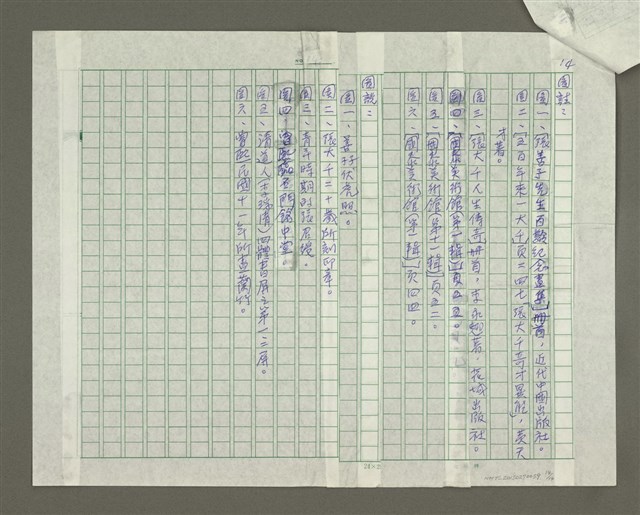 14
圖註：
圖一、〔張善子先生百齡紀念畫集〕冊首，近代中國出版社。
圖二、〔五百年來一大千〕頁二四七〔張大千奇才異能〕，黃天
才著。
圖三、〔張大千人生傳奇〕冊首，李永翹著，花城出版社。
圖四、〔國泰美術館（第一輯）〕頁五五。
圖五、〔國泰美術館（第十一輯）〕頁五二。
圖六、〔國泰美術館（第一輯）〕頁四四。
圖說：
圖一、善孖伏虎照。
圖二、張大千二十歲所刻印章。
圖三、青年時期的張君綬。
圖四、曾熙臨 中堂。
圖五、清道人（李瑞清）四體書屏之第一、二屏。
圖六、曾熙民國十一年所畫蘭竹。